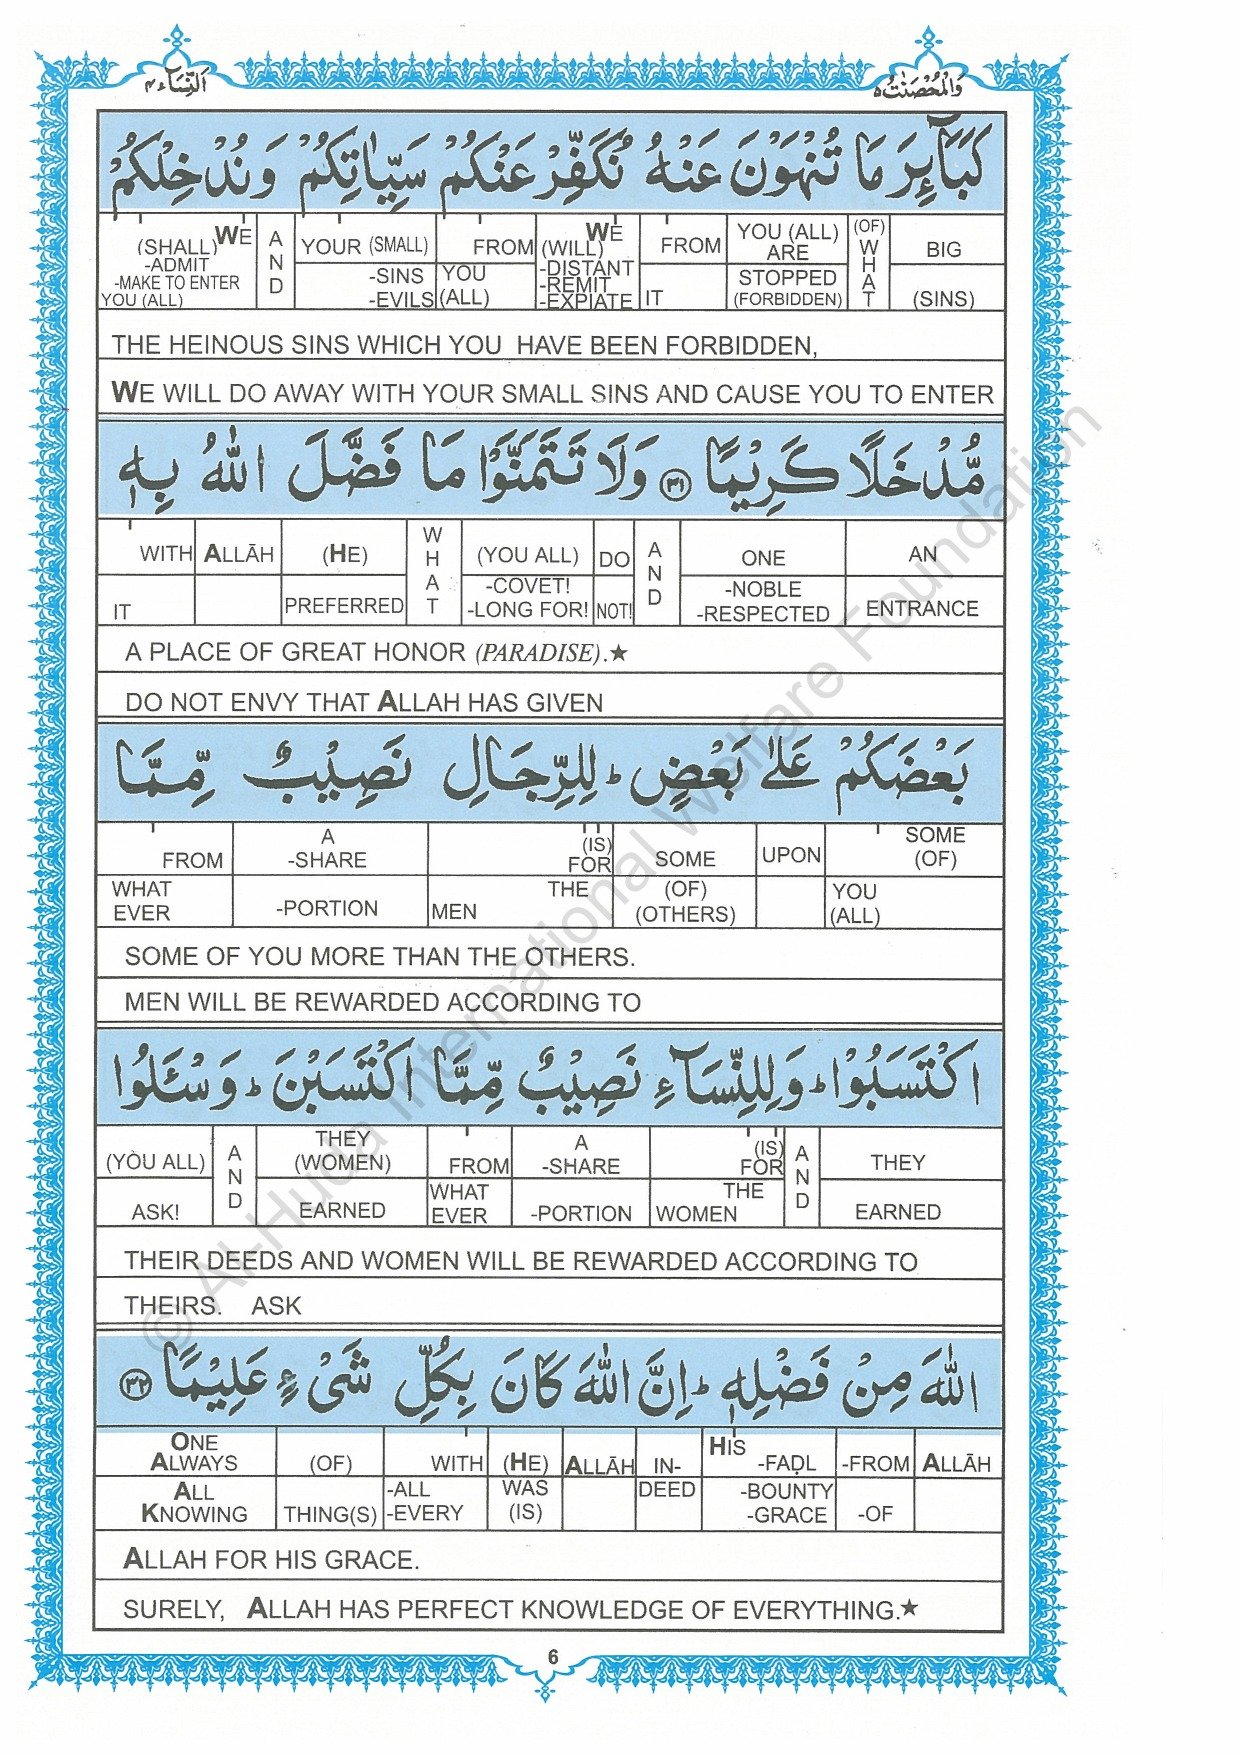 وَالْمُحْصَنٰتُ ٥ اَلنِّسَآء ٤
كَبَآئِرَ مَا تُنْهَوْنَ عَنْهُ نُكَفِّرْ عَنْكُمْ سَيِّاٰتِكُمْ وَنُدْخِلْكُمْ
(SHALL) WE AND YOUR (SMALL) FROM (WILL) WE FROM YOU (ALL) ARE (OF) WHAT BIG
-ADMIT -MAKE TO ENTER YOU (ALL) -SINS -EVILS YOU (ALL) -DISTANT -REMIT -EXPIATE IT STOPPED (FORBIDDEN) (SINS)
THE HEINOUS SINS WHICH YOU HAVE BEEN FORBIDDEN,
WE WILL DO AWAY WITH YOUR SMALL SINS AND CAUSE YOU TO ENTER
مُّدْخَلًا كَرِيْمًا ۝٣١ وَلَا تَتَمَنَّوْا مَا فَضَّلَ اللّٰهُ بِهٖ
WITH ALLĀH (HE) WHAT (YOU ALL) DO AND ONE AN
IT PREFERRED -COVET! -LONG FOR! NOT! -NOBLE -RESPECTED ENTRANCE
A PLACE OF GREAT HONOR (PARADISE).★
DO NOT ENVY THAT ALLAH HAS GIVEN
بَعْضَكُمْ عَلٰى بَعْضٍ ؕ لِلرِّجَالِ نَصِيْبٌ مِّمَّا
FROM A -SHARE (IS) FOR SOME UPON SOME (OF)
WHAT EVER -PORTION MEN THE (OF) (OTHERS) YOU (ALL)
SOME OF YOU MORE THAN THE OTHERS.
MEN WILL BE REWARDED ACCORDING TO
اكْتَسَبُوْا ؕ وَلِلنِّسَآءِ نَصِيْبٌ مِّمَّا اكْتَسَبْنَ ؕ وَسْـَٔلُوا
(YOU ALL) AND THEY (WOMEN) FROM A -SHARE (IS) FOR AND THEY
ASK! EARNED WHAT EVER -PORTION WOMEN THE EARNED
THEIR DEEDS AND WOMEN WILL BE REWARDED ACCORDING TO
THEIRS. ASK
اللّٰهَ مِنْ فَضْلِهٖ ؕ اِنَّ اللّٰهَ كَانَ بِكُلِّ شَىْءٍ عَلِيْمًا ۝٣٢
ONE ALWAYS (OF) WITH (HE) ALLĀH IN- HIS -FAḌL -FROM ALLĀH
ALL KNOWING THING(S) -ALL -EVERY WAS (IS) DEED -BOUNTY -GRACE -OF
ALLAH FOR HIS GRACE.
SURELY, ALLAH HAS PERFECT KNOWLEDGE OF EVERYTHING.★
6
© Al-Huda International Welfare Foundation